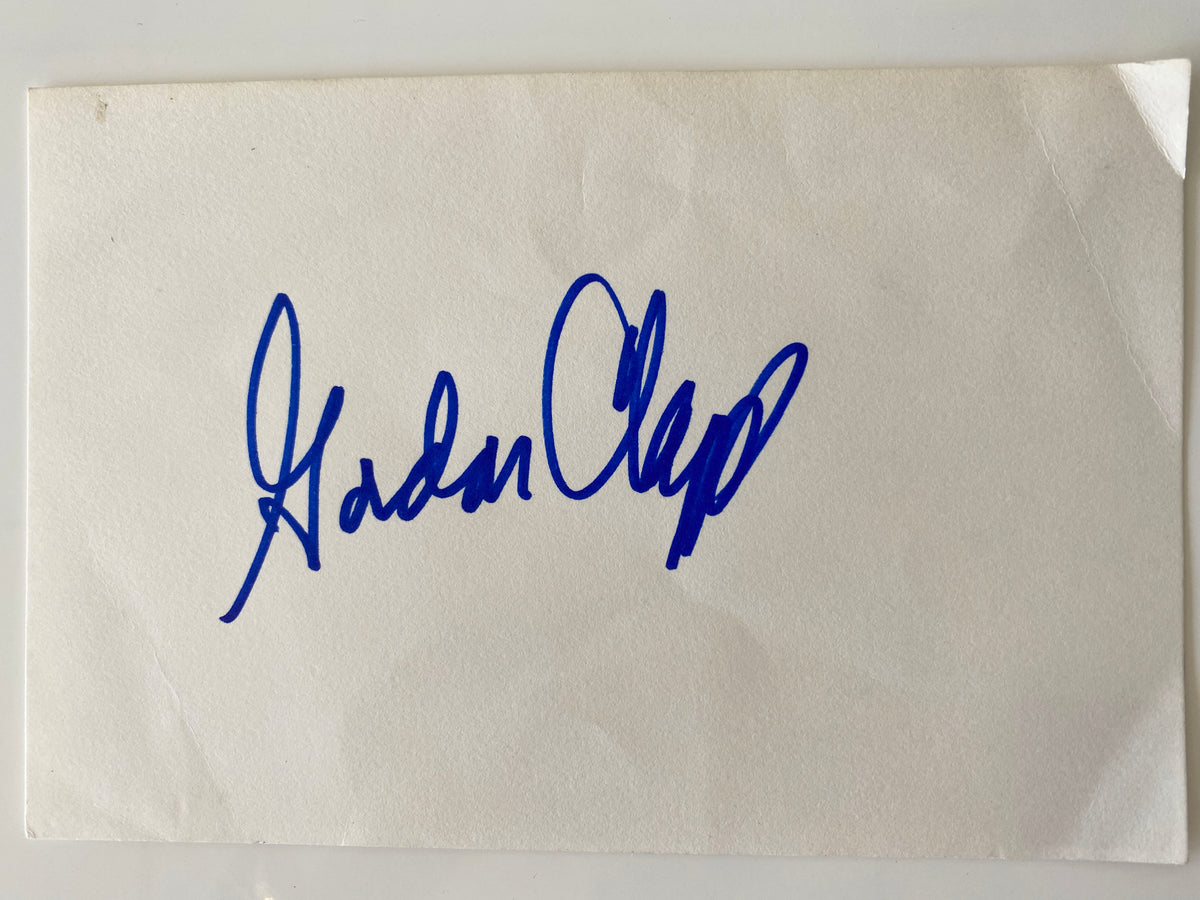 Gordon Clapp